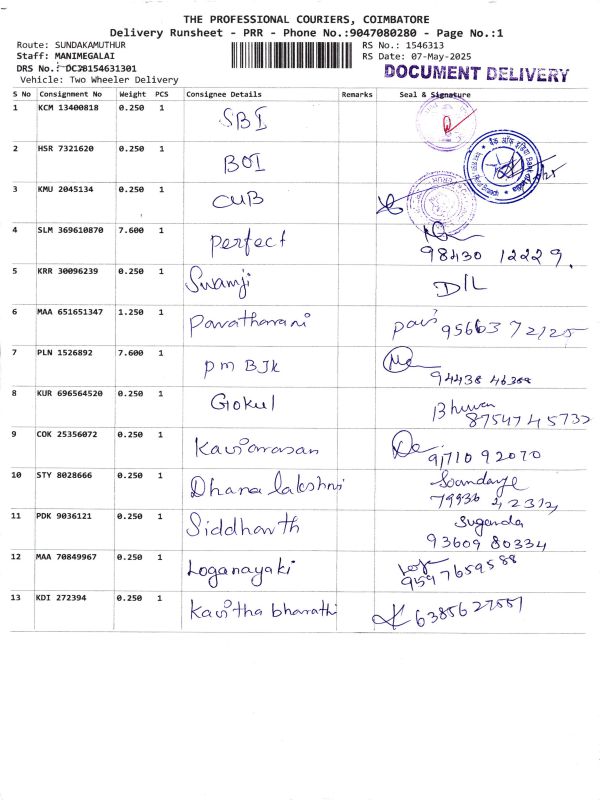 THE PROFESSIONAL COURIERS, COIMBATORE
Delivery Runsheet - PRR - Phone No.:9047080280 - Page No.:1
Route: SUNDAKAMUTHUR
RS No.: 1546313
Staff: MANIMEGALAI
RS Date: 07-May-2025
DRS No.: DCJ8154631301
DOCUMENT DELIVERY
Vehicle: Two Wheeler Delivery
S No Consignment No Weight PCS Consignee Details Remarks Seal & Signature
1 KCM 13400818 0.250 1 SBI
2 HSR 7321620 0.250 1 BOI
3 KMU 2045134 0.250 1 CUB
4 SLM 369610870 7.600 1 perfect 98430 12229.
5 KRR 30096239 0.250 1 Swamji D/L
6 MAA 651651347 1.250 1 Pavatharani 95663 72125
7 PLN 1526892 7.600 1 pm BJK 94438 46388
8 KUR 696564520 0.250 1 Gokul Bhuvan 87547 45732
9 COK 25356072 0.250 1 Kaviarasan 91710 92070
10 STY 8028666 0.250 1 Dhana lakshmi
11 PDK 9036121 0.250 1 Siddharth Suganda 93609 80334
12 MAA 70849967 0.250 1 Loganayaki 9597659588
13 KDI 272394 0.250 1 Kavitha bharathi 6385627551